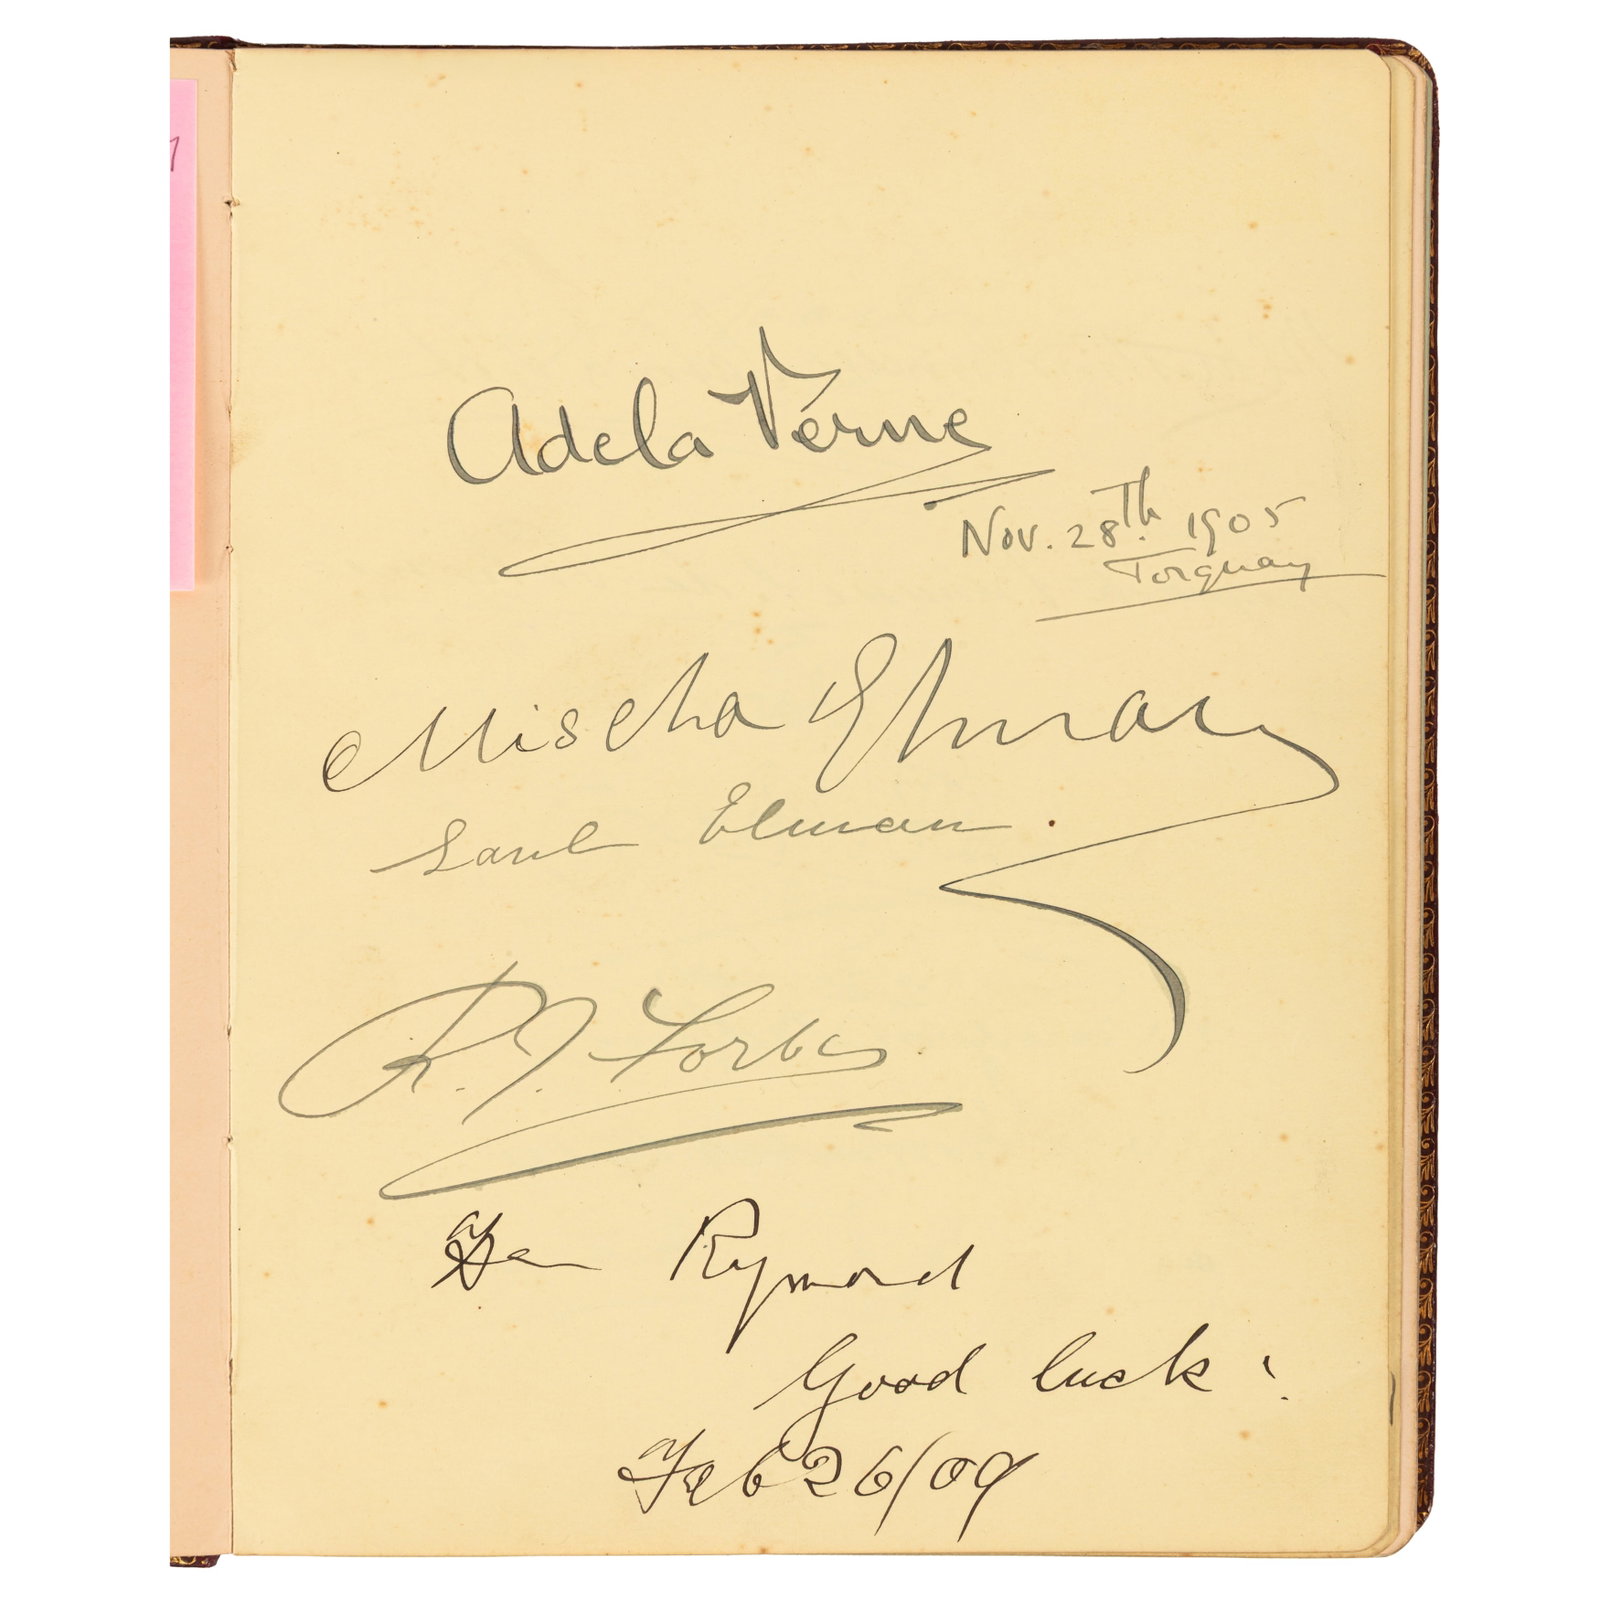 Adela Verne
Nov. 28th. 1905
Torquay
Mischa Elman
Saul Elman.
R. J. Forbes
Rymond
Good luck!
Feb 26/09